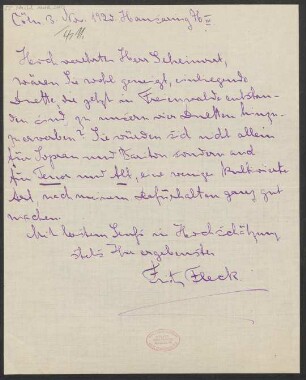 Cöln 3. Nov. 1920. Hansaring 76 II
4/11.
Hochverehrter Herr Geheimrat,
wären Sie wohl geneigt, einliegende
Duette, die jetzt in Freienwalde entstan-
den sind, zu unseren vier Duetten hinzu-
zuerwerben? Sie würden sich nicht allein
für Sopran und Bariton sondern auch
für Tenor und Alt, eine wenige kultivierte
Art, nach meinem Dafürhalten ganz gut
machen.
Mit bestem Gruß in Hochschätzung
stets Ihr ergebenster
Fritz Fleck